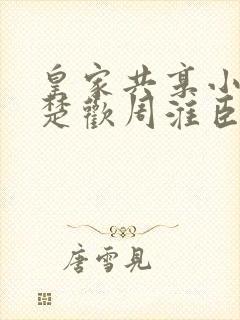 皇家共享小
楚歡周淮臣
唐雪見